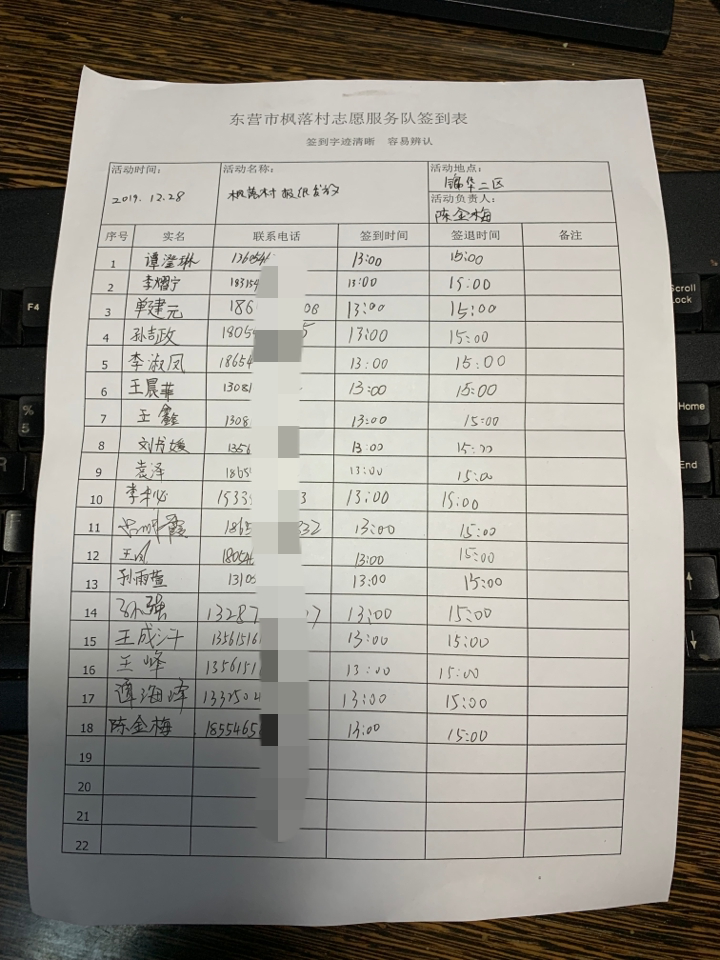 东营市枫落村志愿服务队签到表
签到字迹清晰 容易辨认
活动时间： 活动名称： 活动地点：
2019.12.28 枫落村 报纸 锦华二区
活动负责人：
陈金梅
序号 实名 联系电话 签到时间 签退时间 备注
1 谭滢琳 13:00 15:00
2 李熠宁 18315 13:00 15:00
3 单建元 186 08 13:00 15:00
4 孙吉政 1805 5 13:00 15:00
5 李淑凤 18654 13:00 15:00
6 王晨菲 1308 13:00 15:00
7 王鑫 1308 13:00 15:00
8 刘书媛 1356 13:00 15:00
9 袁泽 1865 13:00 15:00
10 1533 3 13:00 15:00
11 霞 1865 332 13:00 15:00
12 王 1805 13:00 15:00
13 孙雨萱 1310 13:00 15:00
14 孙强 13287 7 13:00 15:00
15 王成 1356151 13:00 15:00
16 王峰 1356151 13:00 15:00
17 谭海峰 133 13:00 15:00
18 陈金梅 1855465 13:00 15:00
19
20
21
22
F4
%
5
R
Scroll
Lock
Home
End